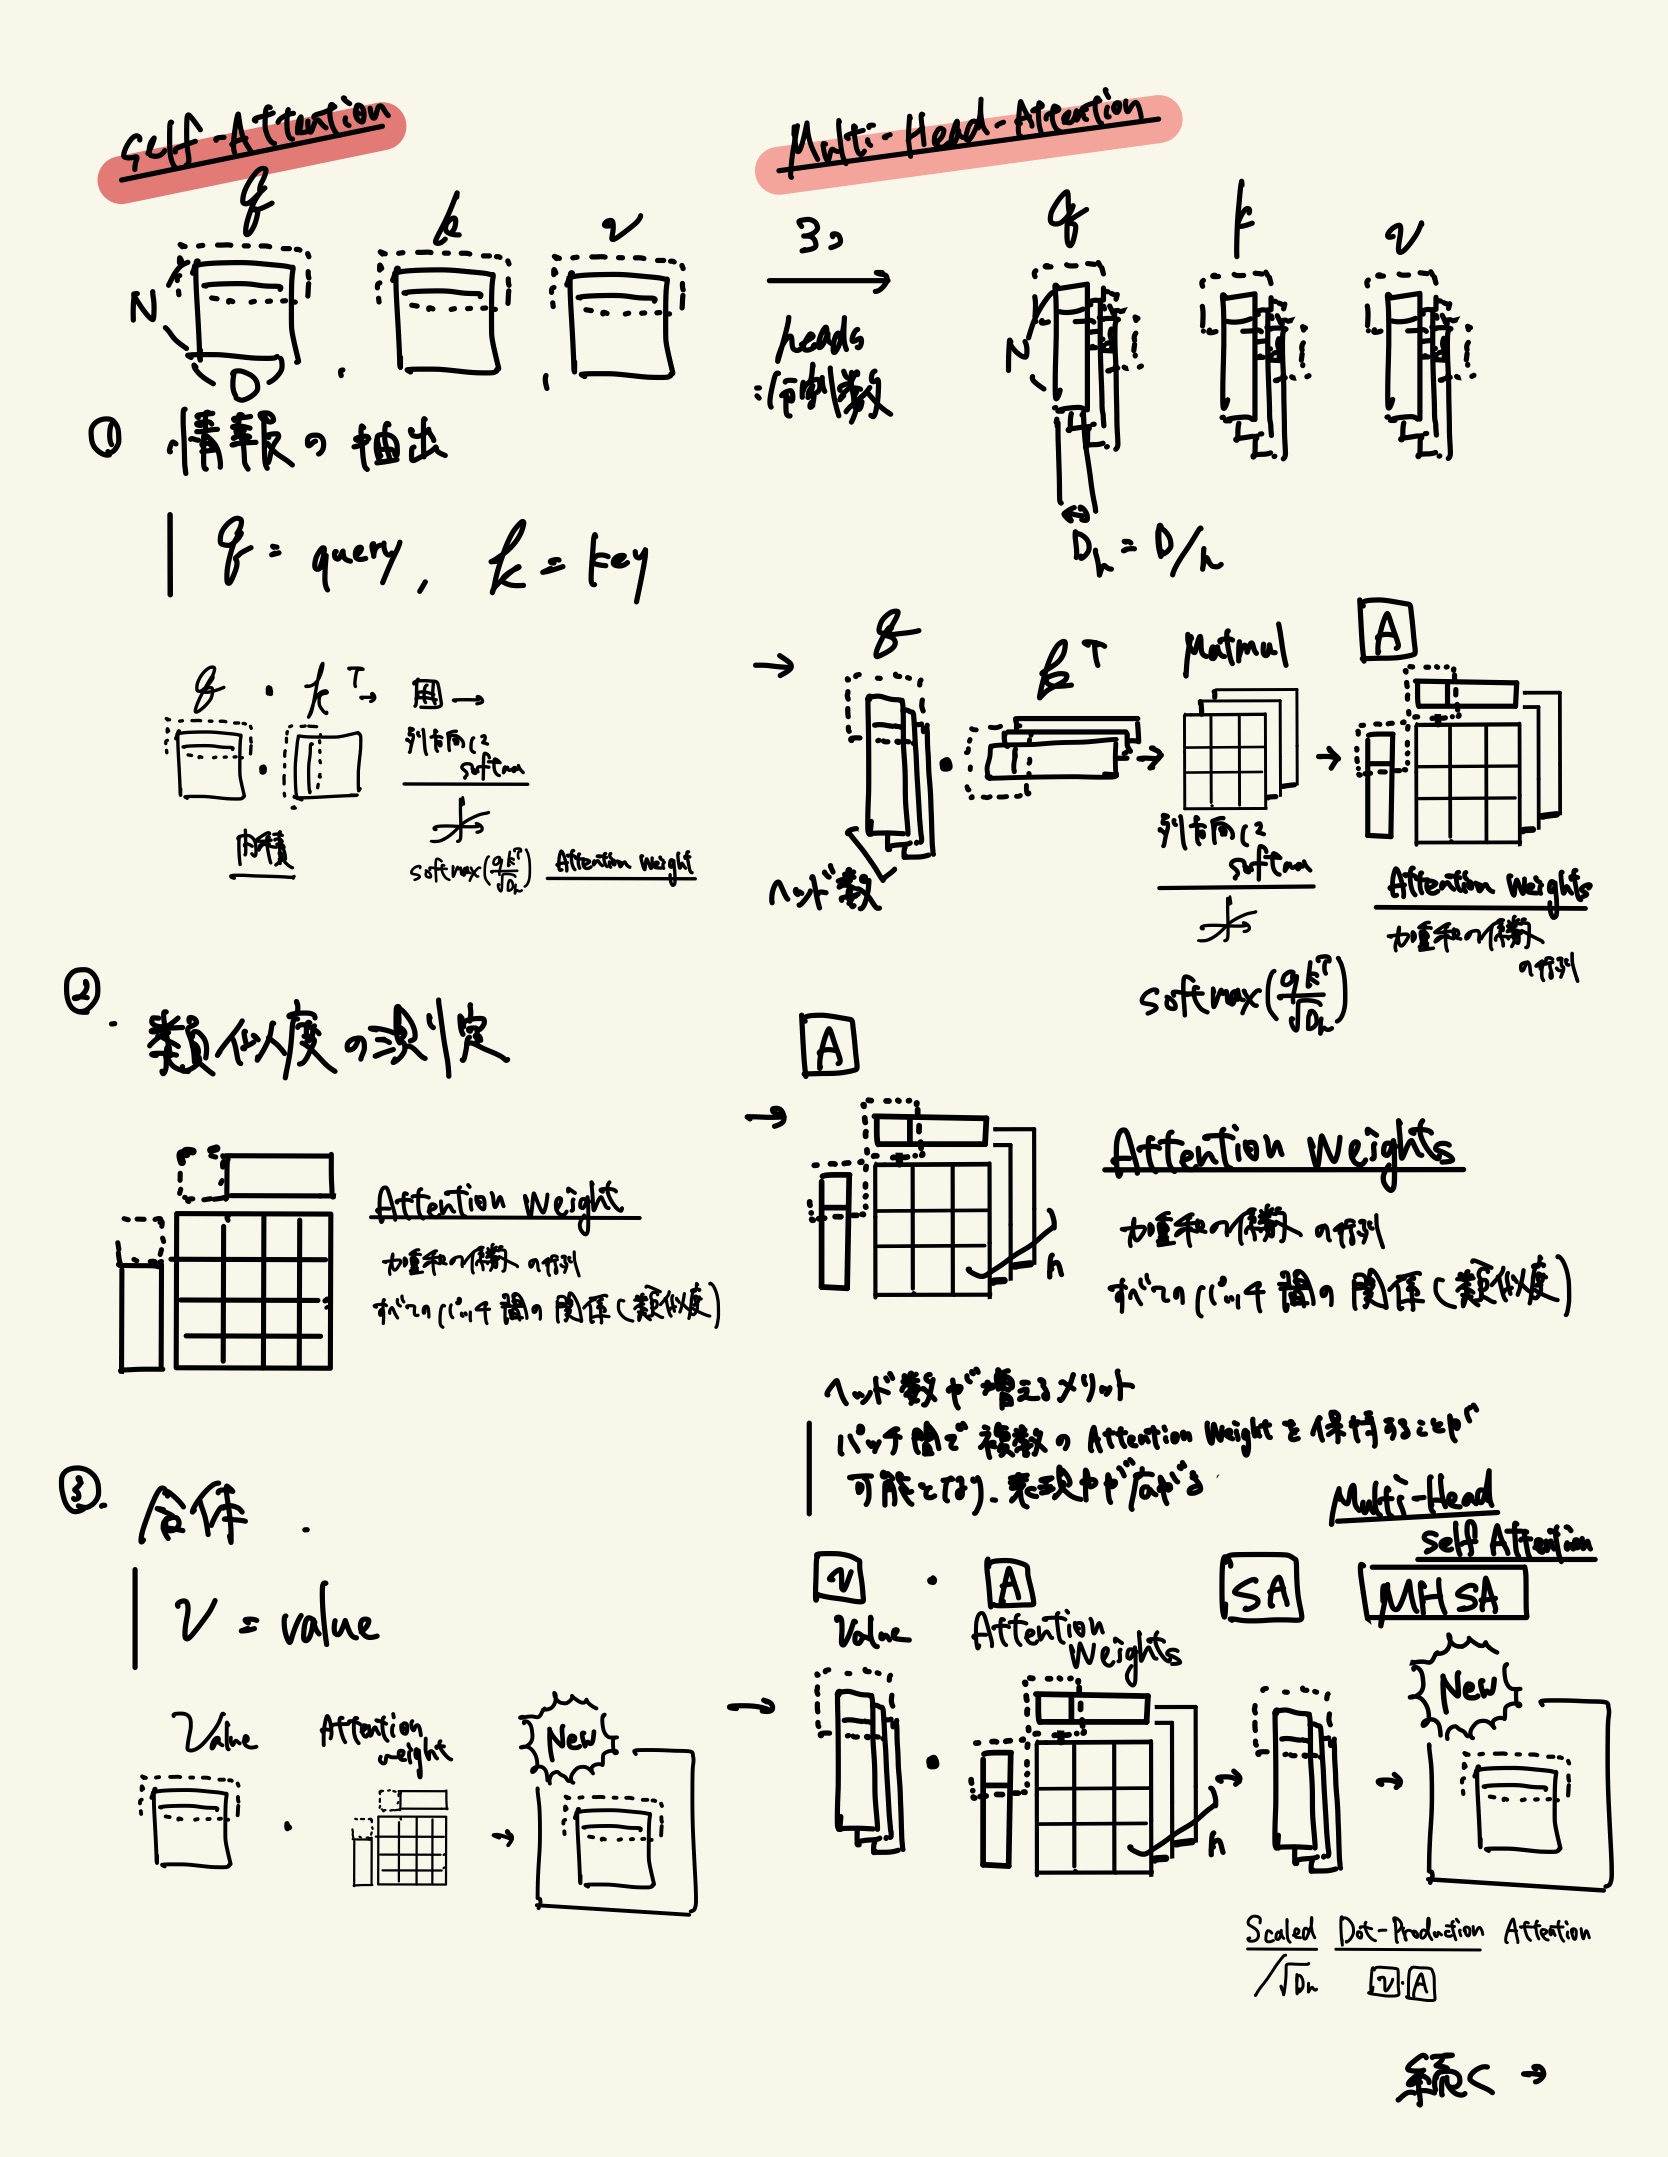 Self-Attention
q k v
N
D
① 情報の抽出
q = query, k = key
q・k^T →
列方向に
softmax
内積
softmax(qk^T/√Dh) Attention Weight
②. 類似度の測定
Attention Weight
加重和の係数の行列
すべてのパッチ間の関係(類似度)
③. 合体
v = value
Value
Attention
weight
New
Multi-Head-Attention
3つ
heads
=行列数
q k v
N
Dh = D/h
q k^T Matmul A
ヘッド数
列方向に
softmax
softmax(qk^T/√Dh)
Attention Weights
加重和の係数
の行列
A
Attention Weights
加重和の係数の行列
すべてのパッチ間の関係(類似度)
h
ヘッド数が増えるメリット
パッチ間で複数のAttention Weightを保持することが
可能となり、表現力が広がる
Multi-Head
Self Attention
v ・ A SA MHSA
Value
Attention
Weights
New
h
Scaled Dot-Production Attention
/√Dh v・A
続く →